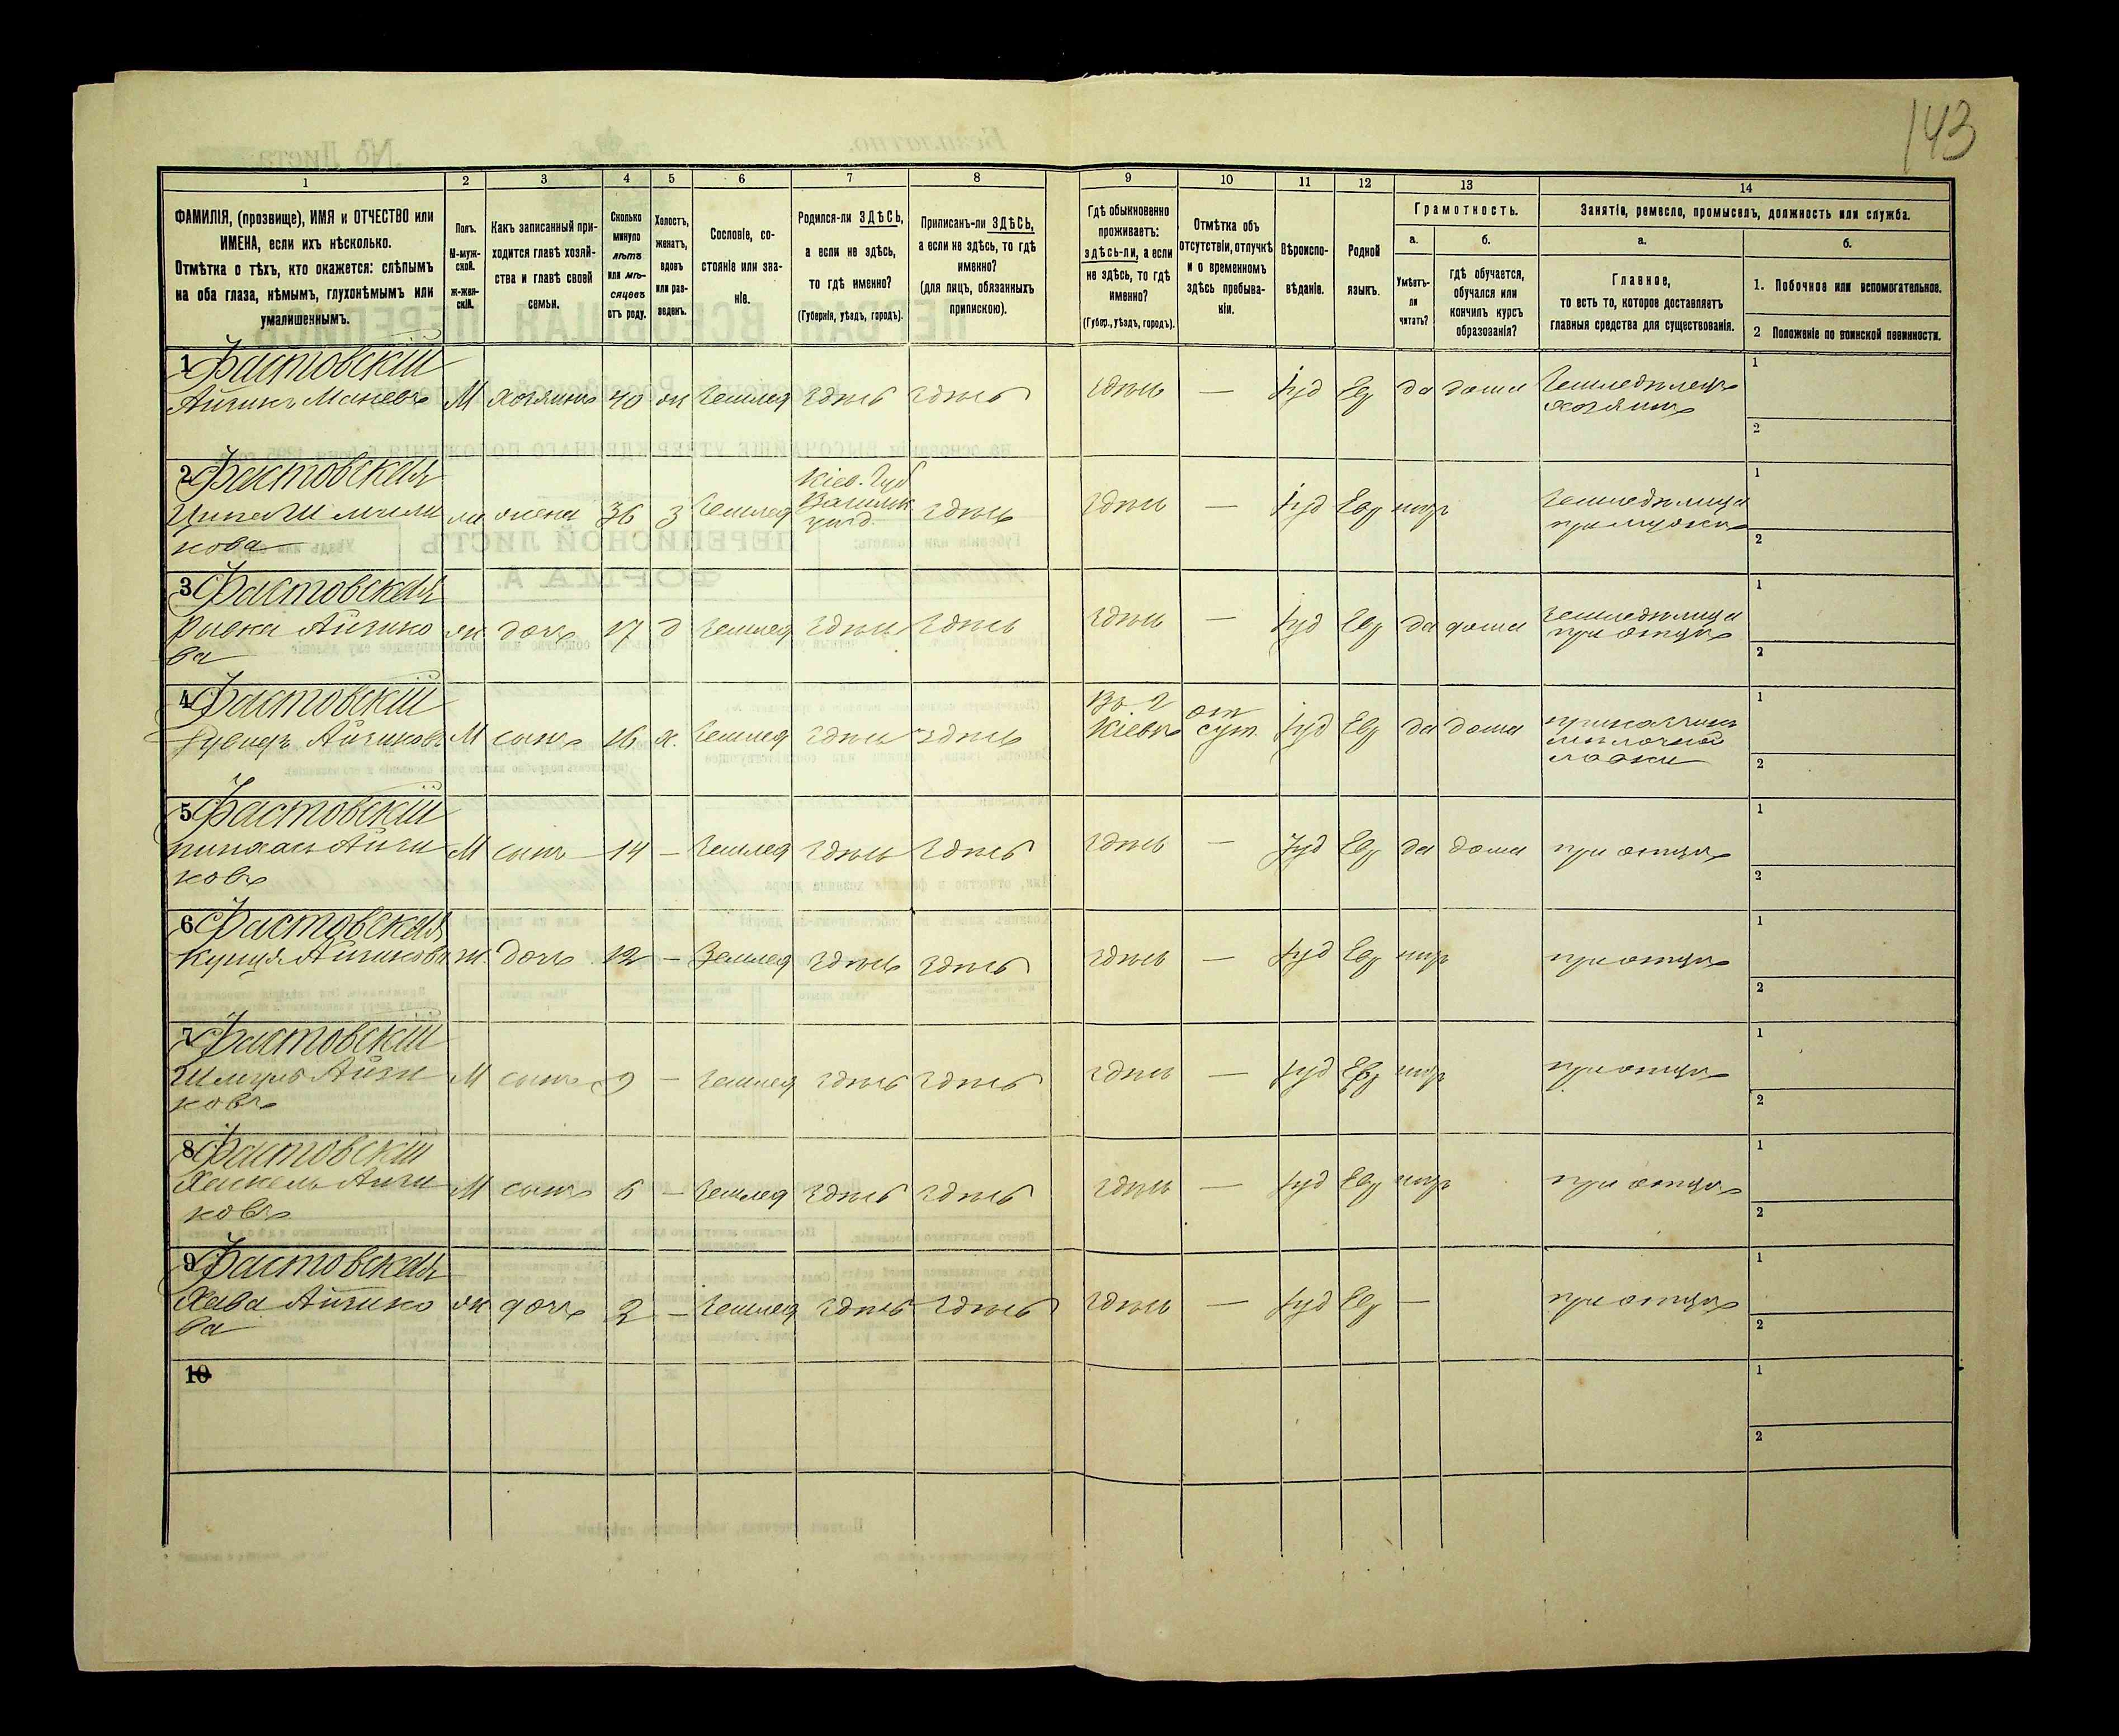 143
1 2 3 4 5 6 7 8 9 10 11 12 13 14
ФАМИЛІЯ, (прозвище), ИМЯ и ОТЧЕСТВО или
ИМЕНА, если ихъ нѣсколько.
Отмѣтка о тѣхъ, кто окажется: слѣпымъ
на оба глаза, нѣмымъ, глухонѣмымъ или
умалишеннымъ.
Полъ.
М-муж-
ской.
ж-жен-
скій.
Какъ записанный при-
ходится главѣ хозяй-
ства и главѣ своей
семьи.
Сколько
минуло
лѣтъ
или мѣ-
сяцевъ
отъ роду.
Холостъ,
женатъ,
вдовъ
или раз-
веденъ.
Сословіе, со-
стояніе или зва-
ніе.
Родился-ли ЗДѢСЬ,
а если не здѣсь,
то гдѣ именно?
(Губернія, уѣздъ, городъ).
Приписанъ-ли ЗДѢСЬ,
а если не здѣсь, то гдѣ
именно?
(для лицъ, обязанныхъ
припискою).
Гдѣ обыкновенно
проживаетъ:
здѣсь-ли, а если
не здѣсь, то гдѣ
именно?
(Губер., уѣздъ, городъ).
Отмѣтка объ
отсутствіи, отлучкѣ
и о временномъ
здѣсь пребыва-
ніи.
Вѣроиспо-
вѣданіе.
Родной
языкъ.
Грамотность.
а.
Умѣетъ-
ли
читать?
б.
гдѣ обучается,
обучался или
кончилъ курсъ
образованія?
Занятіе, ремесло, промыселъ, должность или служба.
а.
Главное,
то есть то, которое доставляетъ
главныя средства для существованія.
б.
1. Побочное или вспомогательное.
2 Положеніе по воинской повинности.
1 Фастовскій
Айзикъ М хозяинъ 40 ж Землед здѣсь здѣсь здѣсь — Іуд Евр да дома Земледѣлецъ
хозяинъ
1
2
2 Фастовская
жена 36 з Землед Кіев. Губ
уѣзд. здѣсь здѣсь — Іуд Евр нѣтъ Земледѣлица
при мужѣ
кова
1
2
3 Фастовская
Ривка Айзико ж дочь 17 д Землед здѣсь здѣсь здѣсь — Іуд Евр да дома Земледѣлица
при отцѣ
ва
1
2
4 Фастовскій
Айзиковъ М сынъ 16 х. Землед здѣсь здѣсь Въ г
Кіевѣ от
сут. Іуд Евр да дома приказчикъ
мѣлочной
лавки
1
2
5 Фастовскій
Пинхас Айзи М сынъ 14 — Землед здѣсь здѣсь здѣсь — Іуд Евр да дома при отцѣ
ковъ
1
2
6 Фастовская
Айзикова ж. дочь 12 — Землед здѣсь здѣсь здѣсь — Іуд Евр нѣтъ при отцѣ
1
2
7 Фастовскій
Шмуль Айзи М сынъ 9 — Землед здѣсь здѣсь здѣсь — Іуд Евр нѣтъ при отцѣ
ковъ
1
2
8 Фастовскій
Хаскель Айзи М сынъ 6 — Землед здѣсь здѣсь здѣсь — Іуд Евр нѣтъ при отцѣ
ковъ
1
2
9 Фастовская
Хава Айзико ж дочь 2 — Землед здѣсь здѣсь здѣсь — Іуд Евр — при отцѣ
ва
1
2
10
1
2